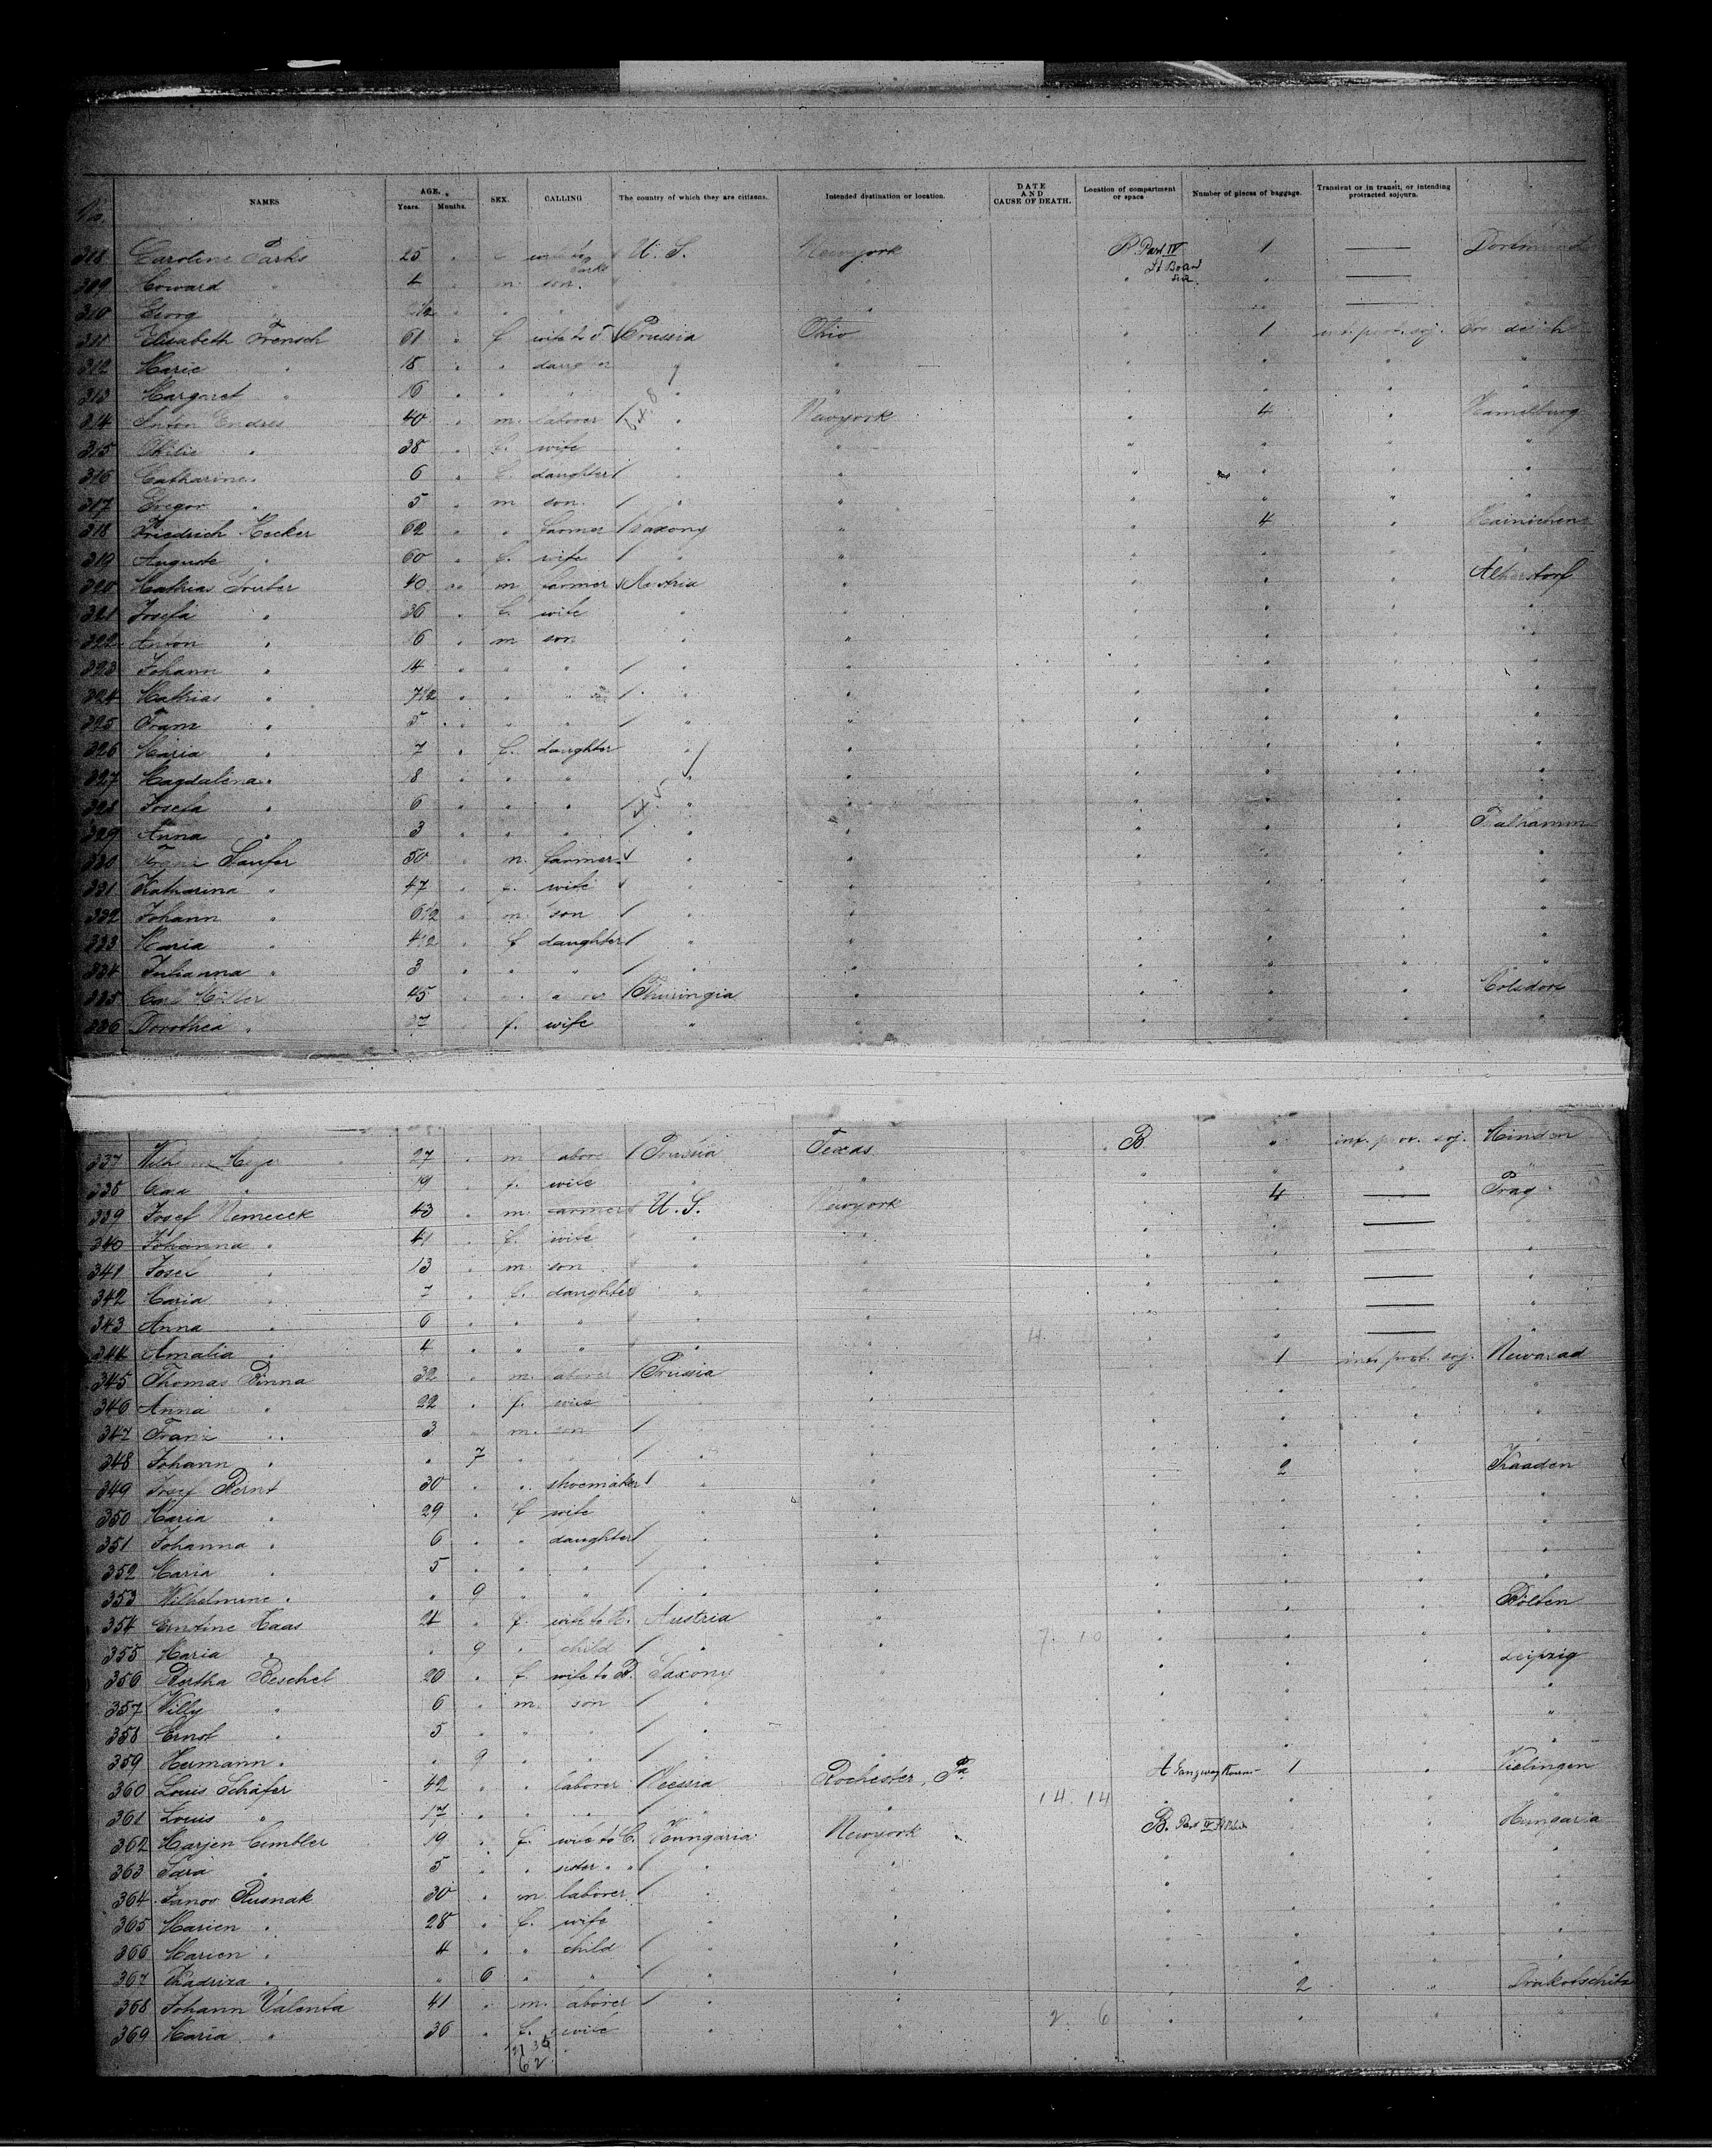 No. NAMES AGE. Years. Months. SEX. CALLING The country of which they are citizens. Intended destination or location. DATE AND CAUSE OF DEATH. Location of compartment or space Number of pieces of baggage. Transient or in transit, or intending protracted sojourn.
Caroline Parks 25 " f. wife to Parks U. S. Newyork B Part IV 1 —
309 Howard " 4 " m. son " " " " —
310 Georg " " " " " " —
311 Elisabeth Frensch 61 " f wife to F Prussia Ohio " 1 int. prot. soj.
312 Marie " 18 " " daughter " " " " "
313 Margaret " 16 " " " " " " " "
314 Anton Endres 40 " m. laborer " Newyork " 4 "
315 Ottilie " 38 " f. wife " " " " " "
316 Catharine " 6 " f. daughter " " " " " "
317 Gregor " 5 " m son " " " " " "
318 Friedrich Hecker 62 " " farmer Saxony " " 4 " Hainichen
319 Auguste " 60 " f. wife " " " " " "
320 Mathias Gruber 40 " m farmer Austria " " " "
321 Josefa " 36 " f. wife " " " " " "
322 Anton " 16 " m son " " " " " "
323 Johann " 14 " " " " " " " " "
324 Mathias " 7 1/2 " " " " " " " " "
325 Franz " 5 " " " " " " " " "
326 Maria " 7 " f. daughter " " " " " "
327 Magdalena " 8 " " " " " " " " "
328 Josefa " 6 " " " " " " " " "
329 Anna " 3 " " " " " " " "
330 Franz Saufer 50 " m. farmer " " " " " "
331 Katharina " 47 " f. wife " " " " " "
332 Johann " 6 1/2 " m. son " " " " " "
333 Maria " 4 1/2 " f daughter " " " " " "
334 Julianna " 3 " " " " " " " " "
335 Carl Müller 45 " " Thuringia " " " "
336 Dorothea " 37 " f. wife " " " " "
337 Wilhelm Meyer 27 " m laborer Prussia Texas B " int. prot. soj. Minden
338 " 19 " f. wife " " " " " "
339 Josef Nemecek 43 " m. farmer U. S. Newyork " 4 — Prag
340 Johanna " 41 " f. wife " " " " — "
341 Josef " 13 " m. son " " " " — "
342 Maria " 7 " f. daughter " " " " — "
343 Anna " 6 " " " " " " " — "
344 Amalia " 4 " " " " " " " — "
345 Thomas Pinna 32 " m. laborer Prussia " " 1 int. prot. soj.
346 Anna " 22 " f. wife " " " " " "
347 Franz " 3 " m. son " " " " " "
348 Johann " " 7 " " " " " " " "
349 Josef Bernt 30 " " shoemaker " " " 2 " Kaaden
350 Maria " 29 " f wife " " " " " "
351 Johanna " 6 " " daughter " " " " " "
352 Maria " 5 " " " " " " " " "
353 Wilhelmine " " 9 " " " " " " " "
354 Ernstine Haas 24 " f. wife to H. Austria " " " "
355 Maria " " 9 " child " " " " " "
356 Bertha Peschel 20 " f. wife to P. Saxony " " " " Leipzig
357 Willy " 6 " m. son " " " " " "
358 Ernst " 5 " " " " " " " " "
359 Hermann " " 9 " " " " " " " "
360 Louis Schäfer 42 " " laborer Rochester, Pa. A 1 "
361 Louis " 17 " " " " " " " " "
362 Marjen Cimbler 19 " f. wife to C. Hungaria Newyork B. Part IV " " Hungaria
363 Sara " 5 " " sister " " " " " " "
364 Janov Rusnak 30 " m laborer " " " " " "
365 Marien " 28 " f. wife " " " " " "
366 Marien " 4 " " child " " " " " "
367 " " 6 " " " " " " " "
368 Johann Valenta 41 " m. laborer " " " 2 " Drakotschitz
369 Maria " 36 " f. wife " " " " " "
62